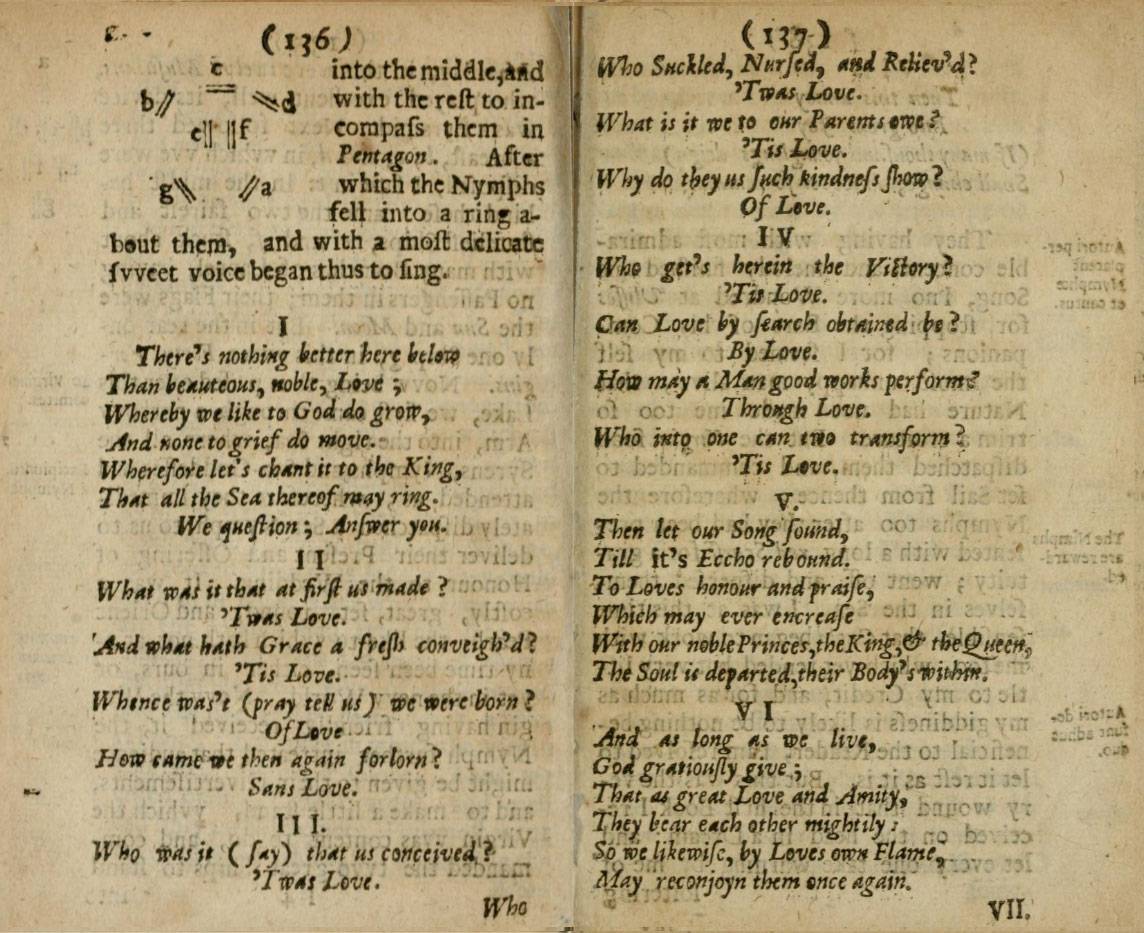 (136)
c into the middle, and
b// \\d with the reſt to in-
e|| ||f compaſs them in
Pentagon. After
g\\ //a which the Nymphs
fell into a ring a-
bout them, and with a moſt delicate
ſvveet voice began thus to ſing.
I
There's nothing better here below
Than beauteous, noble, Love;
Whereby we like to God do grow,
And none to grief do move.
Wherefore let's chant it to the King,
That all the Sea thereof may ring.
We queſtion; Anſwer you.
II
What was it that at firſt us made?
'Twas Love.
And what hath Grace a freſh conveigh'd?
'Tis Love.
Whence was't (pray tell us) we were born?
Of Love
How came we then again forlorn?
Sans Love.
III.
Who was it (ſay) that us conceived?
'Twas Love.
Who
(137)
Who Suckled, Nurſed, and Reliev'd?
'Twas Love.
What is it we to our Parents owe?
'Tis Love.
Why do they us ſuch kindneſs ſhow?
Of Love.
IV
Who get's herein the Victory?
'Tis Love.
Can Love by ſearch obtained be?
By Love.
How may a Man good works perform?
Through Love.
Who into one can two transform?
'Tis Love.
V.
Then let our Song ſound,
Till it's Eccho rebound.
To Loves honour and praiſe,
Which may ever encreaſe
With our noble Princes, the King, & the Queen,
The Soul is departed, their Body's within.
VI
And as long as we live,
God gratiouſly give;
That as great Love and Amity,
They bear each other mightily:
So we likewiſe, by Loves own Flame,
May reconjoyn them once again.
VII.